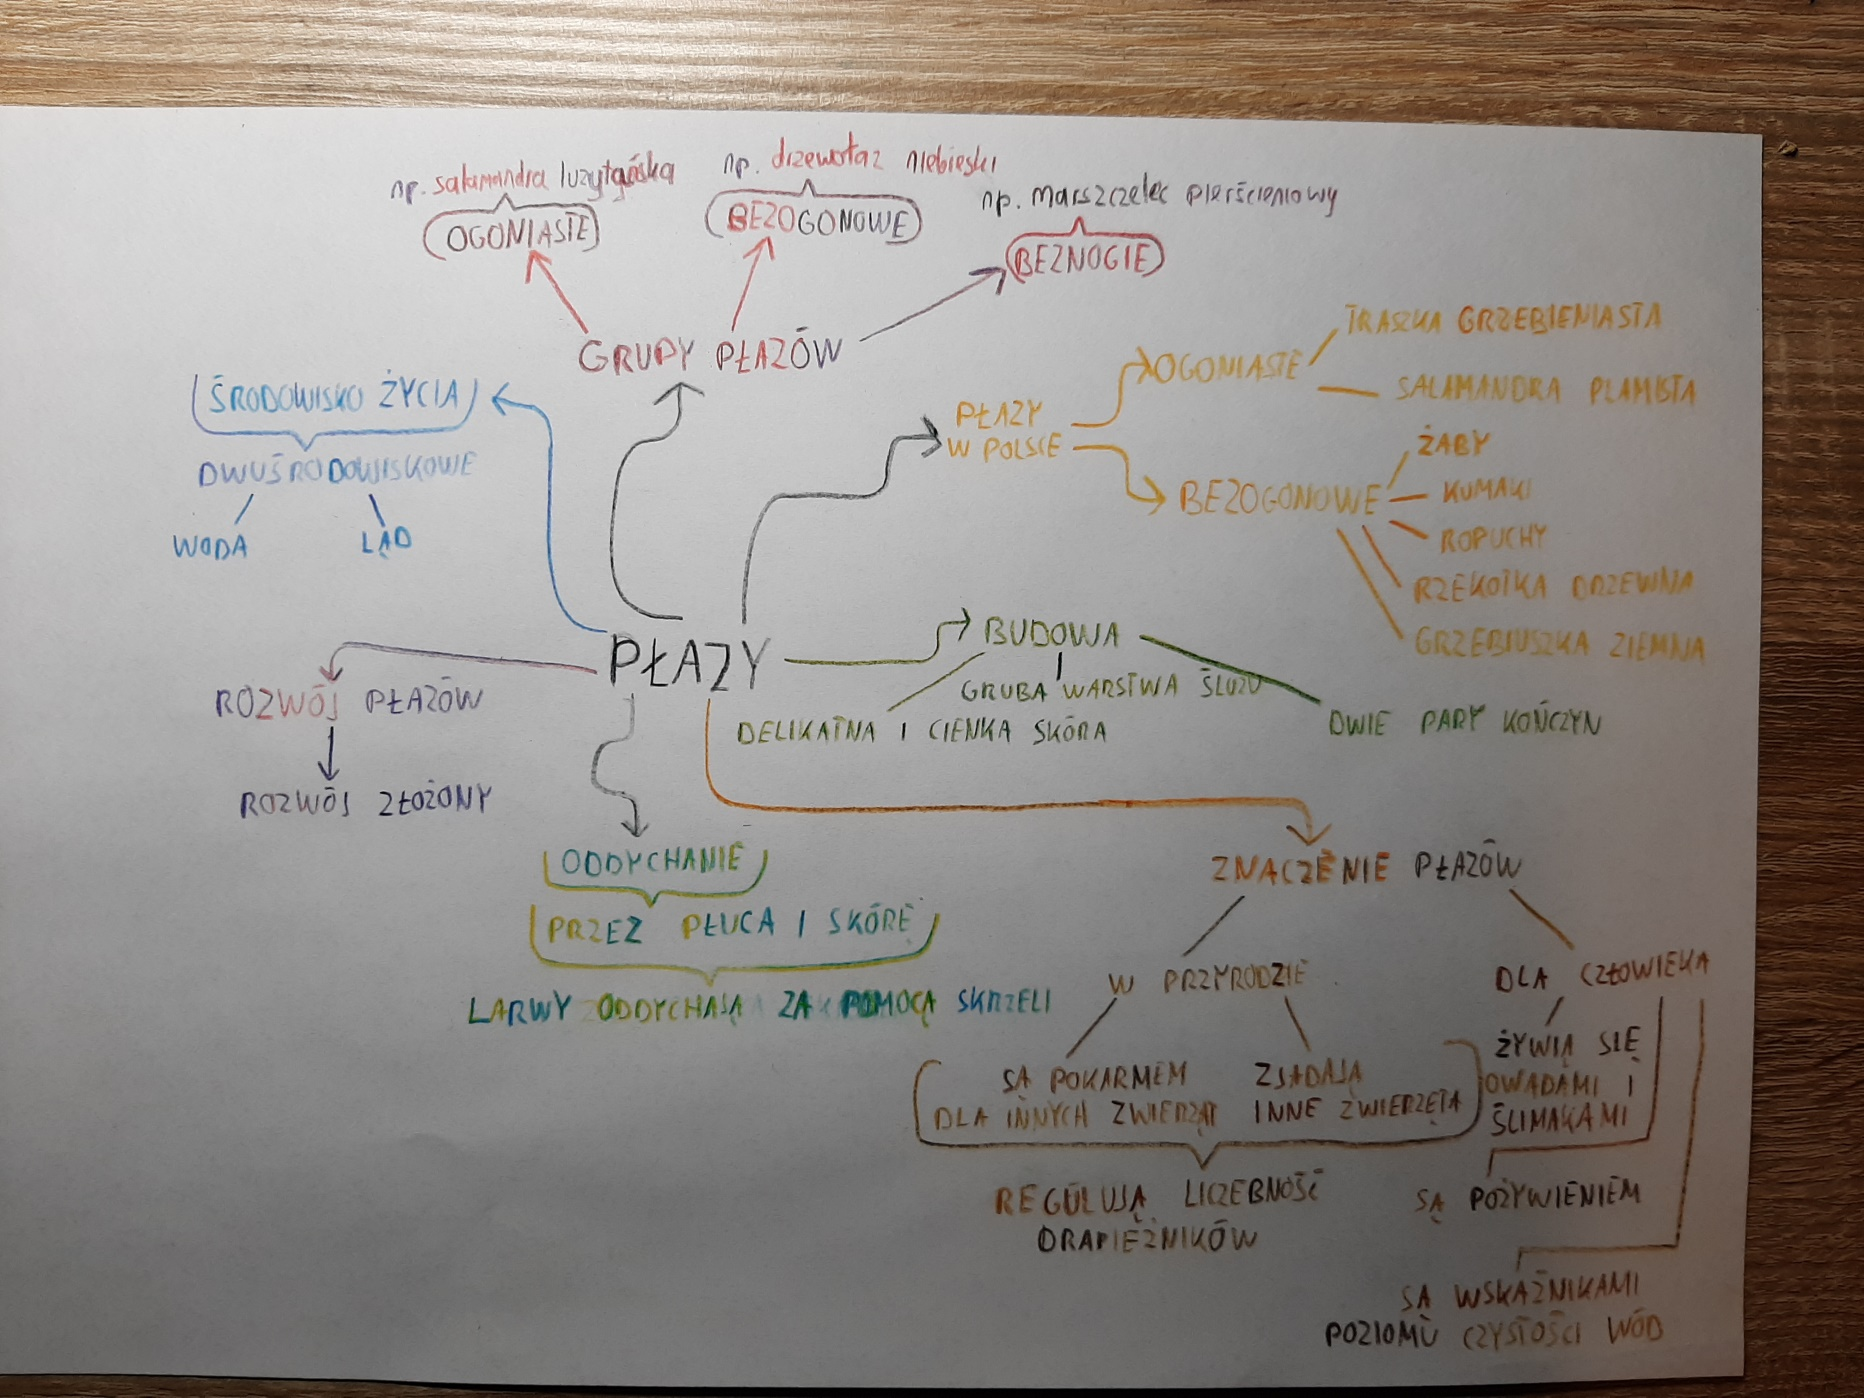 np. salamandra luzytańska
np. drzewołaz niebieski
np. marszczelec pierścieniowy
OGONIASTE
BEZOGONOWE
BEZNOGIE
GRUPY PŁAZÓW
ŚRODOWISKO ŻYCIA
DWUŚRODOWISKOWE
WODA
LĄD
PŁAZY
W POLSCE
OGONIASTE
TRASZKA GRZEBIENIASTA
SALAMANDRA PLAMISTA
BEZOGONOWE
ŻABY
KUMAKI
ROPUCHY
RZEKOTKA DRZEWNA
GRZEBIUSZKA ZIEMNA
PŁAZY
BUDOWA
GRUBA WARSTWA ŚLUZU
DELIKATNA I CIENKA SKÓRA
DWIE PARY KOŃCZYN
ROZWÓJ PŁAZÓW
ROZWÓJ ZŁOŻONY
ODDYCHANIE
PRZEZ PŁUCA I SKÓRĘ
LARWY ODDYCHAJĄ ZA POMOCĄ SKRZELI
ZNACZENIE PŁAZÓW
W PRZYRODZIE
DLA CZŁOWIEKA
SĄ POKARMEM
DLA INNYCH ZWIERZĄT
ZJADAJĄ
INNE ZWIERZĘTA
REGULUJĄ LICZEBNOŚĆ
DRAPIEŻNIKÓW
ŻYWIĄ SIĘ
OWADAMI I
ŚLIMAKAMI
SĄ POŻYWIENIEM
SĄ WSKAŹNIKAMI
POZIOMU CZYSTOŚCI WÓD